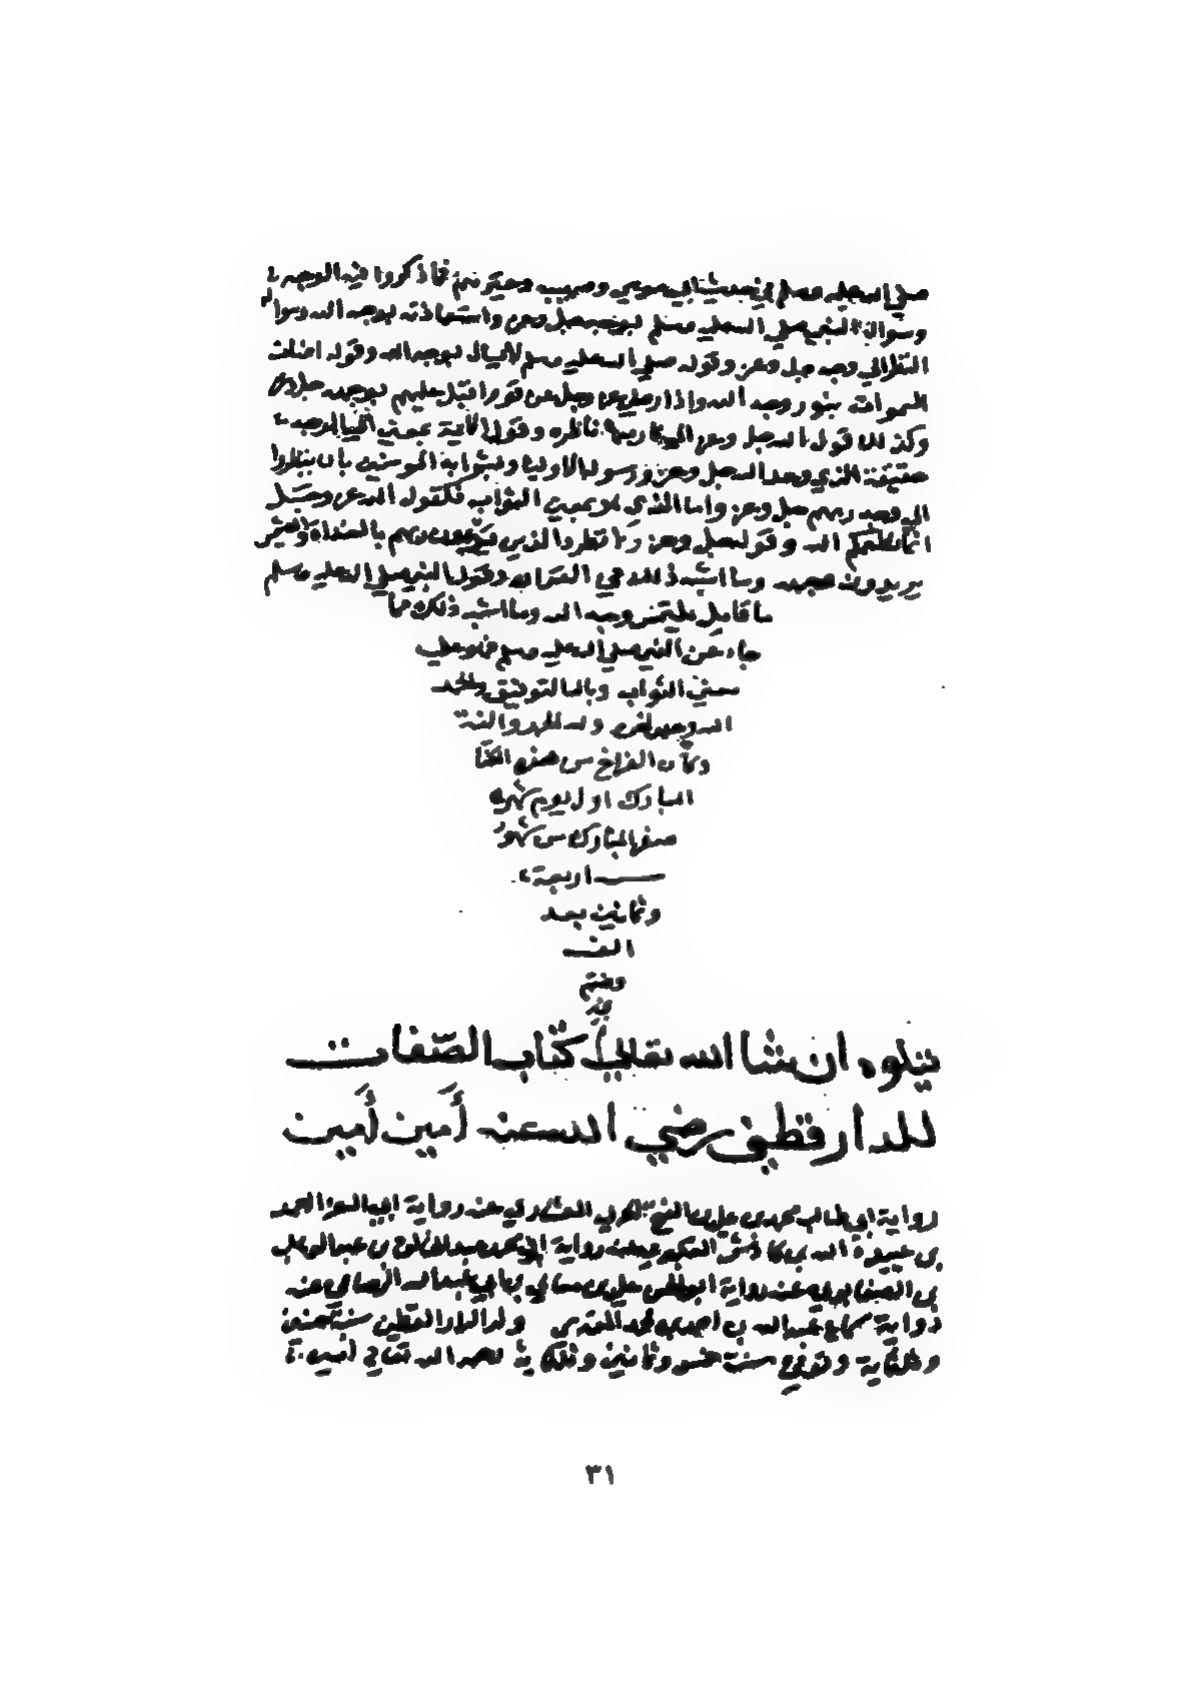 صلى الله عليه وسلم في حديث ابي موسى وصهيب وغيرهم فما ذكروا فيه الوجه
وسوال النبي صلى الله عليه وسلم بوجهه جل وعز واستعاذته بوجه الله وسواله
النظر الي وجهه جل وعز وقوله صلى الله عليه وسلم لا يسال بوجه الله وقوله اضات
السموات بنور وجه الله واذا رضي عز وجل عن قوم اقبل عليهم بوجهه جل وعز
وكذلك قول الله جل وعز الى ربها ناظرة وقول الاية
الذي وعد الله جل وعز ورسوله الاوليا وبشر به المومنين بان ينظروا
الى وجه ربهم جل وعز واما الذي هو بمعنى الثواب فكقول الله عز وجل
انما نطعمكم لوجه الله وقوله جل وعز ولا تطرد الذين يدعون ربهم بالغداة والعشي
يريدون وجهه وما اشبه ذلك في القران وقول النبي صلى الله عليه وسلم
ما قال يلتمس وجه الله وما اشبه ذلك مما
جاء عن النبي صلى الله عليه وسلم فهو على
معنى الثواب وبالله التوفيق والحمد
الله وحده وله الحمد والمنة
وكان الفراغ من هذه الكتاب
المبارك اول يوم شهر
صفر المبارك من شهور
اربعة
وثمانين بعد
الف
وختم
يتلوه ان شا الله تعالى كتاب الصفات
للدارقطني رضي الله عنه أمين أمين
رواية ابي طالب محمد بن علي بن الفتح الحربي العشاري عنه رواية ابي العز احمد
بن عبيد الله بن كادش العكبري عنه رواية ابي محمد عبد الخالق بن عبد الوهاب
بن الصفا عنه رواية ابو الحسن علي بن بن ابي عبد الله عنه
رواية سماع عبد الله بن احمد بن محمد المقدسي ولد الدارقطني سنة خمس
وثلثماية وتوفي سنة خمس وثمانين وثلثماية رحمه الله تعالى امين
٣١